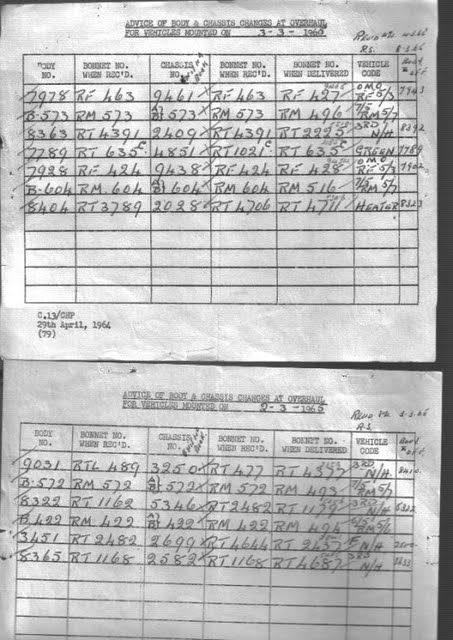 ADVICE OF BODY & CHASSIS CHANGES AT OVERHAUL
FOR VEHICLES MOUNTED ON 3-3-1966
R.S. 8-3-66
BODY NO. BONNET NO. WHEN REC'D. CHASSIS NO. BONNET NO. BONNET NO. WHEN DELIVERED VEHICLE CODE
7978 RF 463 9461 RF 463 RF 427 OMO RF 5/3 7943
B-573 RM 573 573 RM 573 RM 496 7/5 RM 5/7
8363 RT 4391 2409 RT 4391 RT 2225 3RD N/H 8392
7789 RT 635 C 4851 RT 1021 C RT 635 C GREEN 7789
7928 RF 424 9438 RF 424 RF 428 OMO RF 5/3 7902
B-604 RM 604 604 RM 604 RM 516 7/5 RM 5/7
8404 RT 3789 2028 RT 4706 RT 4711 HEATER 8323
C.13/CHP
29th April, 1964
(79)
ADVICE OF BODY & CHASSIS CHANGES AT OVERHAUL
FOR VEHICLES MOUNTED ON 2-3-1966
BODY NO. BONNET NO. WHEN REC'D. CHASSIS NO. BONNET NO. BONNET NO. WHEN DELIVERED VEHICLE CODE
9031 RTL 489 3250 RT 477 RT 4377 3RD N/H
B-572 RM 572 572 RM 572 RM 493 7/5 RM 5/7
8322 RT 1162 5346 RT 2482 RT 1179 3RD N/H
B-422 RM 422 422 RM 422 RM 494
3451 RT 2482 2699 RT 4644 RT 2437 N/H
8365 RT 1168 2582 RT 1168 RT 4687 3RD N/H